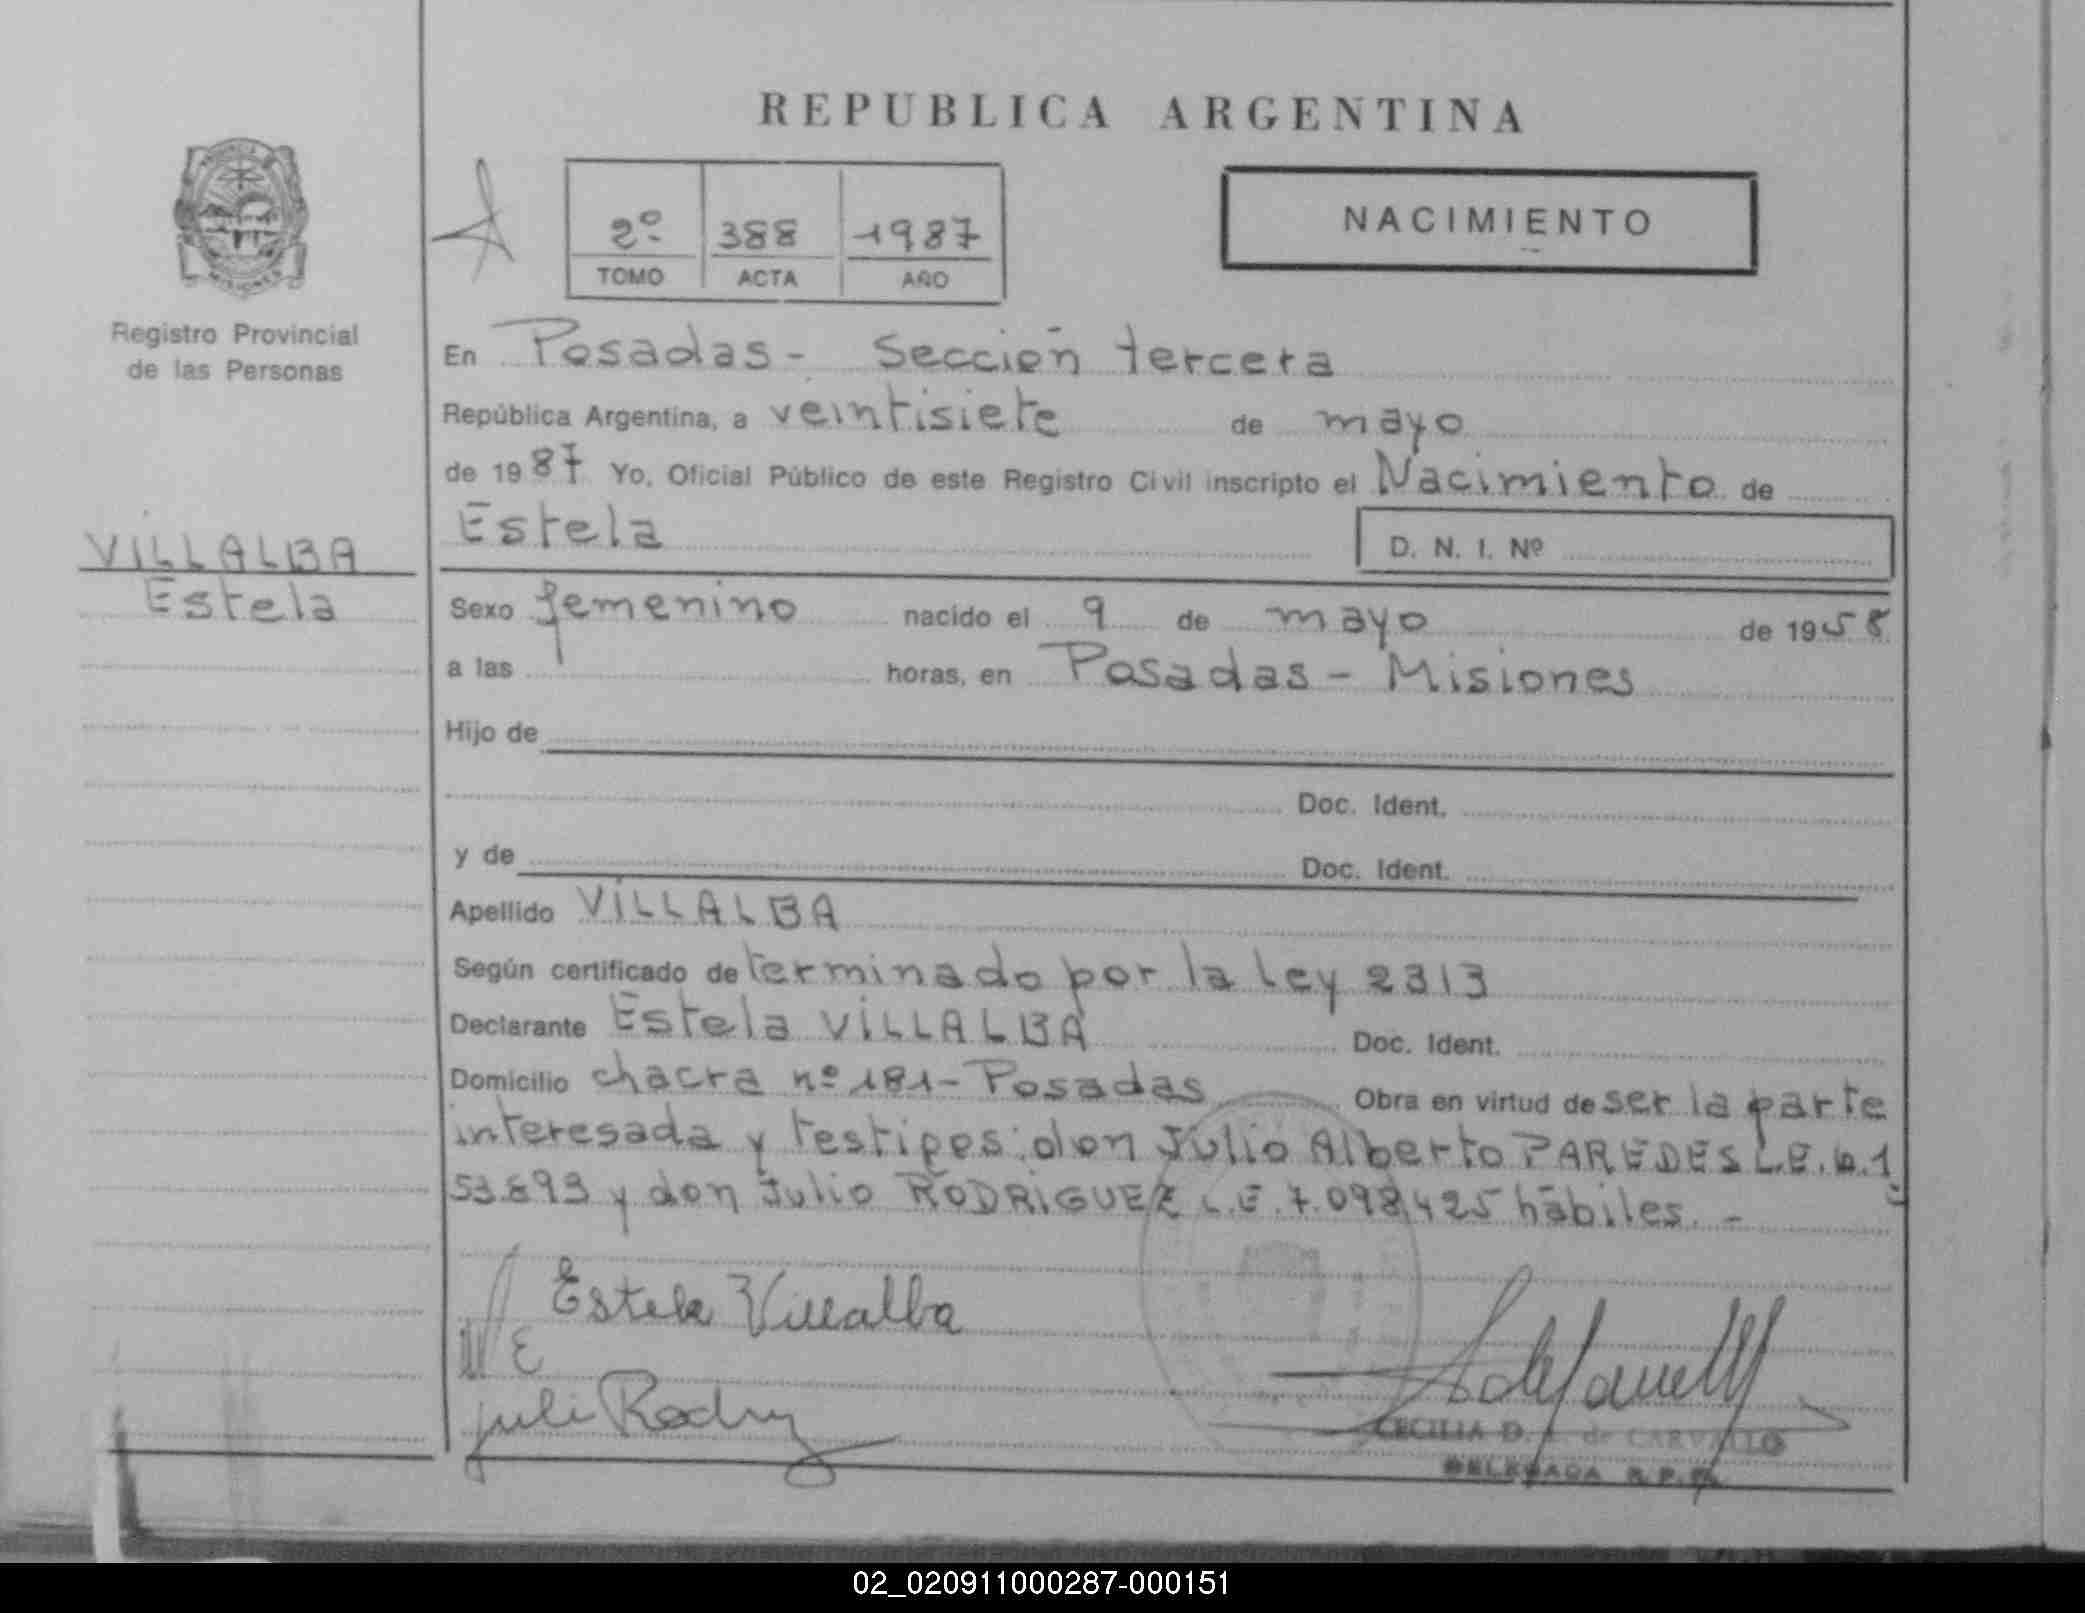 REPUBLICA ARGENTINA
2º 388 1987
TOMO ACTA AÑO
NACIMIENTO
Registro Provincial
de las Personas
VILLALBA
Estela
En Posadas - Sección tercera
República Argentina, a veintisiete de mayo
de 1987 Yo, Oficial Público de este Registro Civil inscripto el Nacimiento de
Estela D. N. I. Nº
Sexo femenino nacido el 9 de mayo de 1958
a las horas, en Posadas - Misiones
Hijo de
Doc. Ident.
y de Doc. Ident.
Apellido VILLALBA
Según certificado determinado por la Ley 2313
Declarante Estela VILLALBA Doc. Ident.
Domicilio chacra nº 181 - Posadas Obra en virtud de ser la parte
interesada y testigos: don Julio Alberto PAREDES L.E.
y don Julio RODRIGUEZ L.E. 7.098.425 hábiles. -
Estela Villalba
CECILIA D. de CARVALLO
DELEGADA R.P.P.
02_020911000287-000151